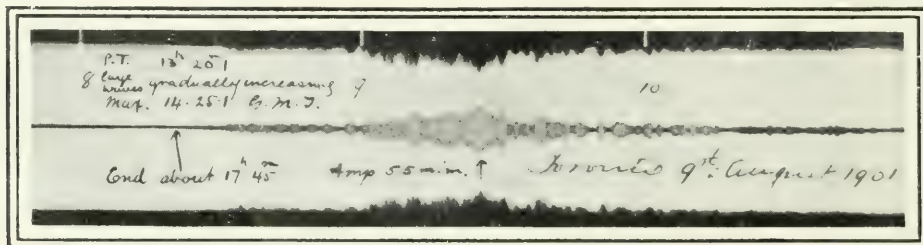 P.T. 13h 20.1
8 large waves gradually increasing 9 10
Max. 14.25.1 G.M.T.
End about 17h 45m Amp 5.5 m.m. ↑ Toronto 9th August 1901